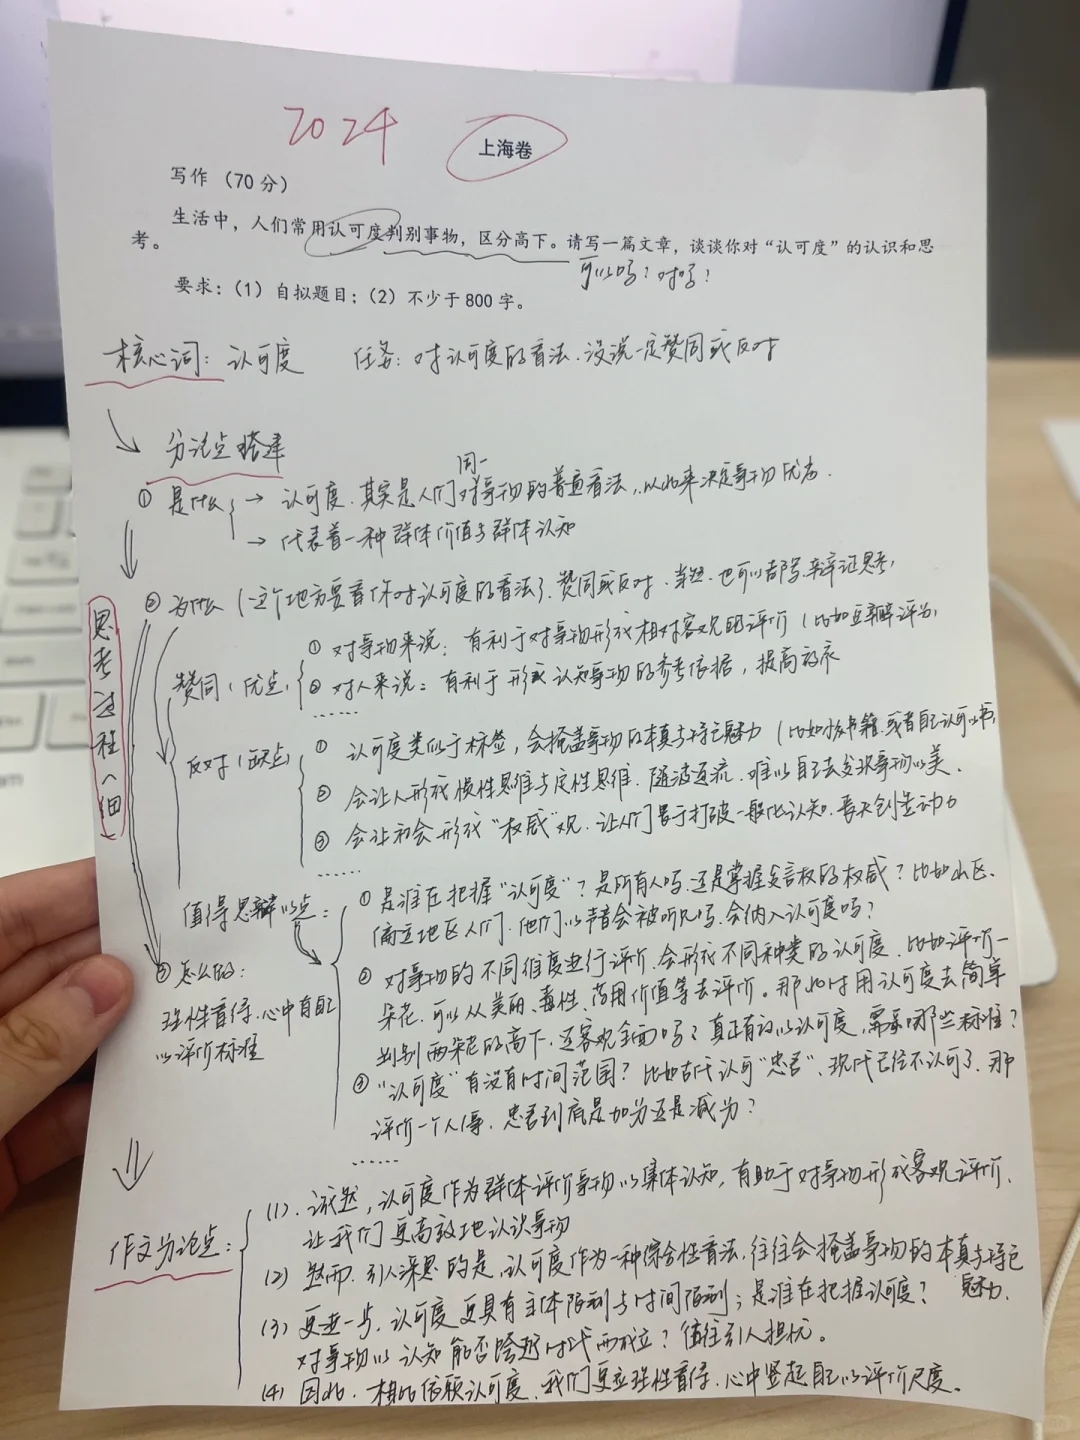 2024
上海卷
写作（70分）
生活中，人们常用认可度判别事物，区分高下。请写一篇文章，谈谈你对“认可度”的认识和思
考。
可以吗？对吗？
要求：（1）自拟题目；（2）不少于800字。
核心词：认可度 任务：对认可度的看法．没说一定赞同或反对
分论点搭建
① 是什么 → 认可度．其实是人们对同一事物的普遍看法，以此来决定事物优劣．
→ 代表着一种群体价值与群体认知
思考过程（细）
② 为什么（这个地方要看你对认可度的看法了．赞同或反对．当然．也可以都写．辩证思考，
赞同（优点） ① 对事物来说：有利于对事物形成相对客观的评价（比如豆瓣评分，
② 对人来说：有利于形成认知事物的参考依据，提高效率
......
反对（缺点） ① 认可度类似于标签，会掩盖事物的本真与特色魅力（比如书籍．或者自己认可的书，
② 会让人形成惯性思维与定性思维．随波逐流．难以自己去发现事物的美．
③ 会让社会形成“权威”观．让人们畏于打破一般化认知．丧失创造动力
......
值得思辩的点： ① 是谁在把握“认可度”？是所有人吗．还是掌握发言权的权威？比如山区．
偏远地区人们．他们的声音会被听见吗．会纳入认可度吗？
② 对事物的不同维度进行评价．会形成不同种类的认可度．比如评价一
朵花．可以从美丽、毒性、药用价值等去评价。那此时用认可度去简单
判别两朵花的高下．还客观全面吗？真正有效的认可度，需要哪些标准？
③ “认可度”有没有时间范围？比如古代认可“忠君”、现代已经不认可了．那
评价一个人得．忠君到底是加分还是减分？
......
③ 怎么做：
理性看待．心中有自己
的评价标准
作文分论点：
(1)．诚然，认可度作为群体评价事物的集体认知，有助于对事物形成客观评价．
让我们更高效地认识事物
(2) 然而．引人深思的是，认可度作为一种综合性看法，往往会掩盖事物的本真与特色
魅力．
(3) 更进一步．认可度更具有主体限制与时间限制；是谁在把握认可度？
对事物的认知能否跨越时代而成立？值得引人担忧。
(4) 因此．相比依赖认可度．我们更应理性看待．心中竖起自己的评价尺度。